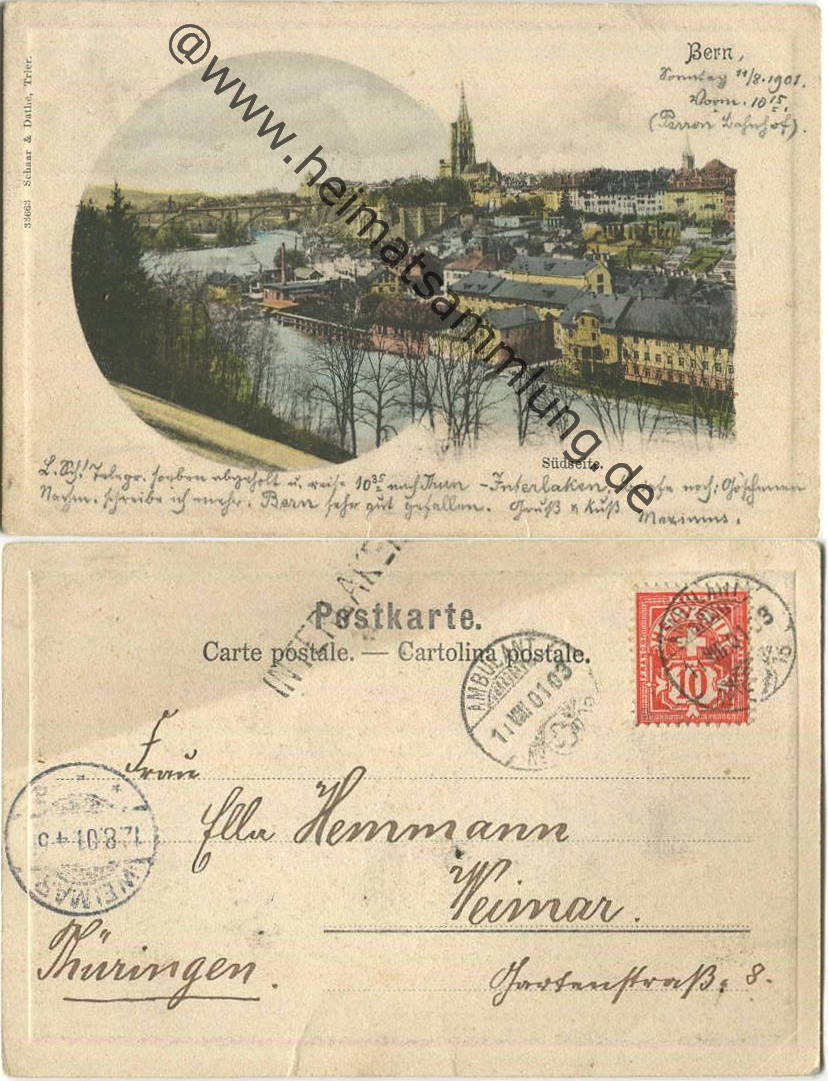 33663 Schaar & Dathe, Trier.
Bern,
Sonntag 11/8.1901.
Vorm. 10 15.
(Perron Bahnhof).
@www.heimatsammlung.de
Südseite.
L. Sch! Telegr. soeben abgeholt u. reise 10 35 nach Thun - Interlaken, noch: Göschenen
Nachm. schreibe ich mehr. Bern sehr gut gefallen. Gruß & Kuß
INTERLAKEN
Postkarte.
Carte postale. — Cartolina postale.
AMBULANT
11 VIII 01 03
10
Frau
Ella Hemmann
Weimar.
WEIMAR
12.8.01.4-5
Thüringen.
Gartenstraß. 8.